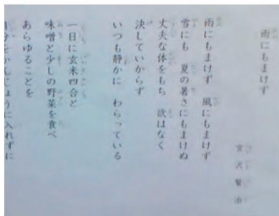 雨にもまけず
宮沢賢治
雨にもまけず　風にもまけず
雪にも　夏の暑さにもまけぬ
丈夫な体をもち　欲はなく
決していからず
いつも静かに　わらっている
一日に玄米四合と
味噌と少しの野菜を食べ
あらゆることを
自分をかんじょうに入れずに